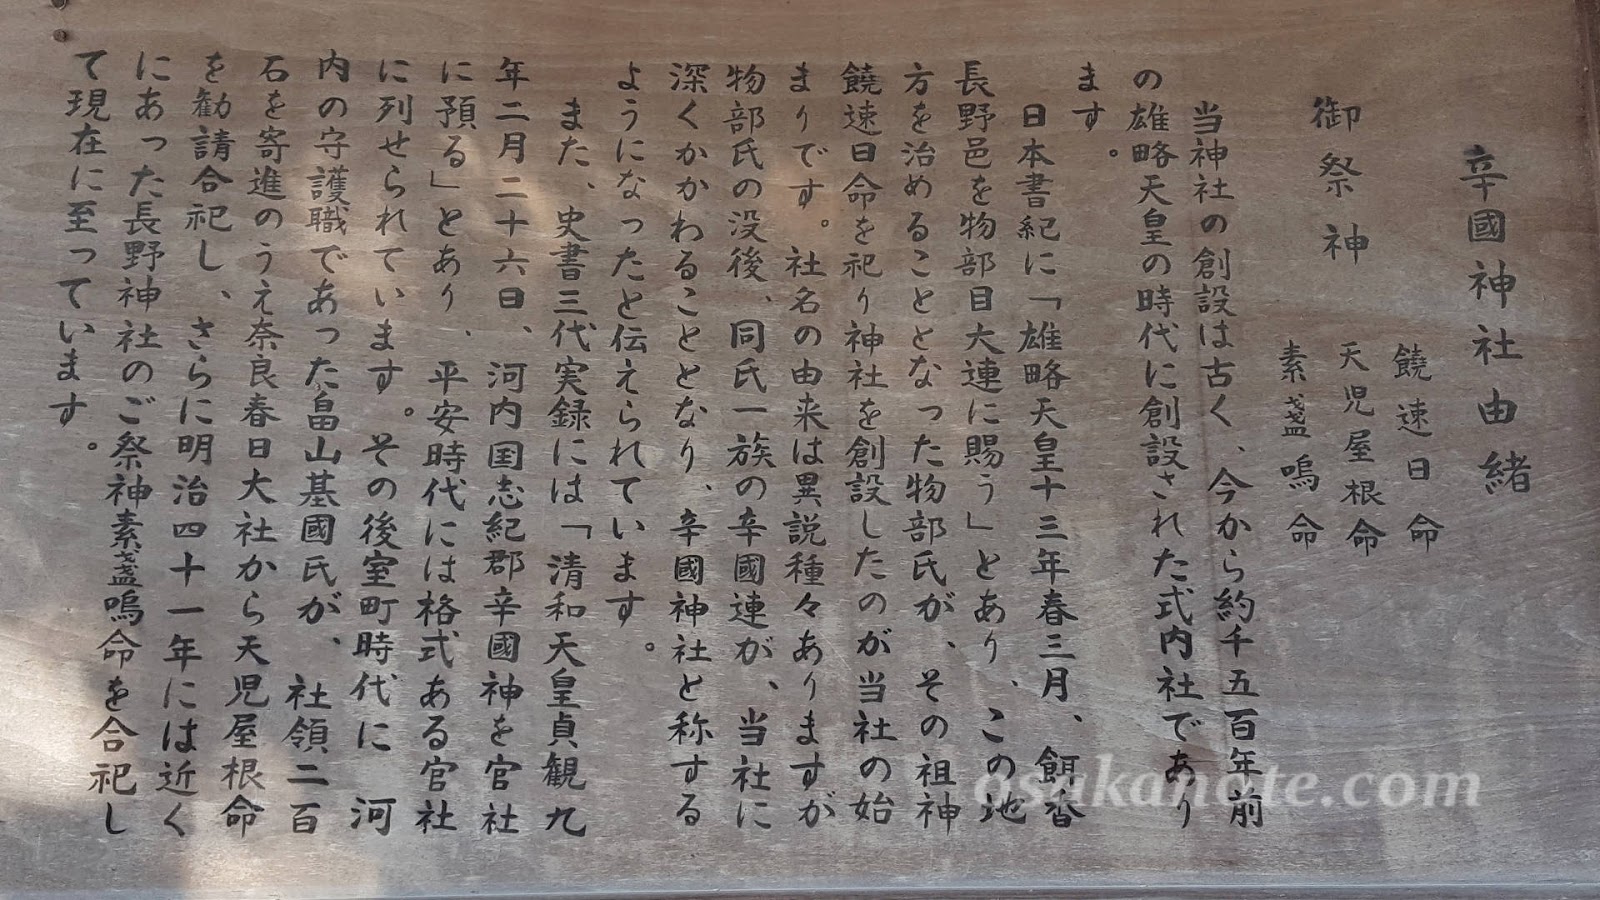 辛國神社由緒
御祭神
饒速日命
天児屋根命
素盞嗚命
当神社の創設は古く、今から約千五百年前
の雄略天皇の時代に創設された式内社であり
ます。
日本書紀に「雄略天皇十三年春三月、餌香
長野邑を物部目大連に賜う」とあり、この地
方を治めることとなった物部氏が、その祖神
饒速日命を祀り神社を創設したのが当社の始
まりです。社名の由来は異説種々ありますが
物部氏の没後、同氏一族の辛國連が、当社に
深くかかわることとなり、辛國神社と称する
ようになったと伝えられています。
また、史書三代実録には「清和天皇貞観九
年二月二十六日、河内国志紀郡辛國神を官社
に預る」とあり、平安時代には格式ある官社
に列せられています。その後室町時代に河
内の守護職であった畠山基國氏が、社領二百
石を寄進のうえ奈良春日大社から天児屋根命
を勧請合祀し、さらに明治四十一年には近く
にあった長野神社のご祭神素盞嗚命を合祀し
て現在に至っています。
osakanote.com